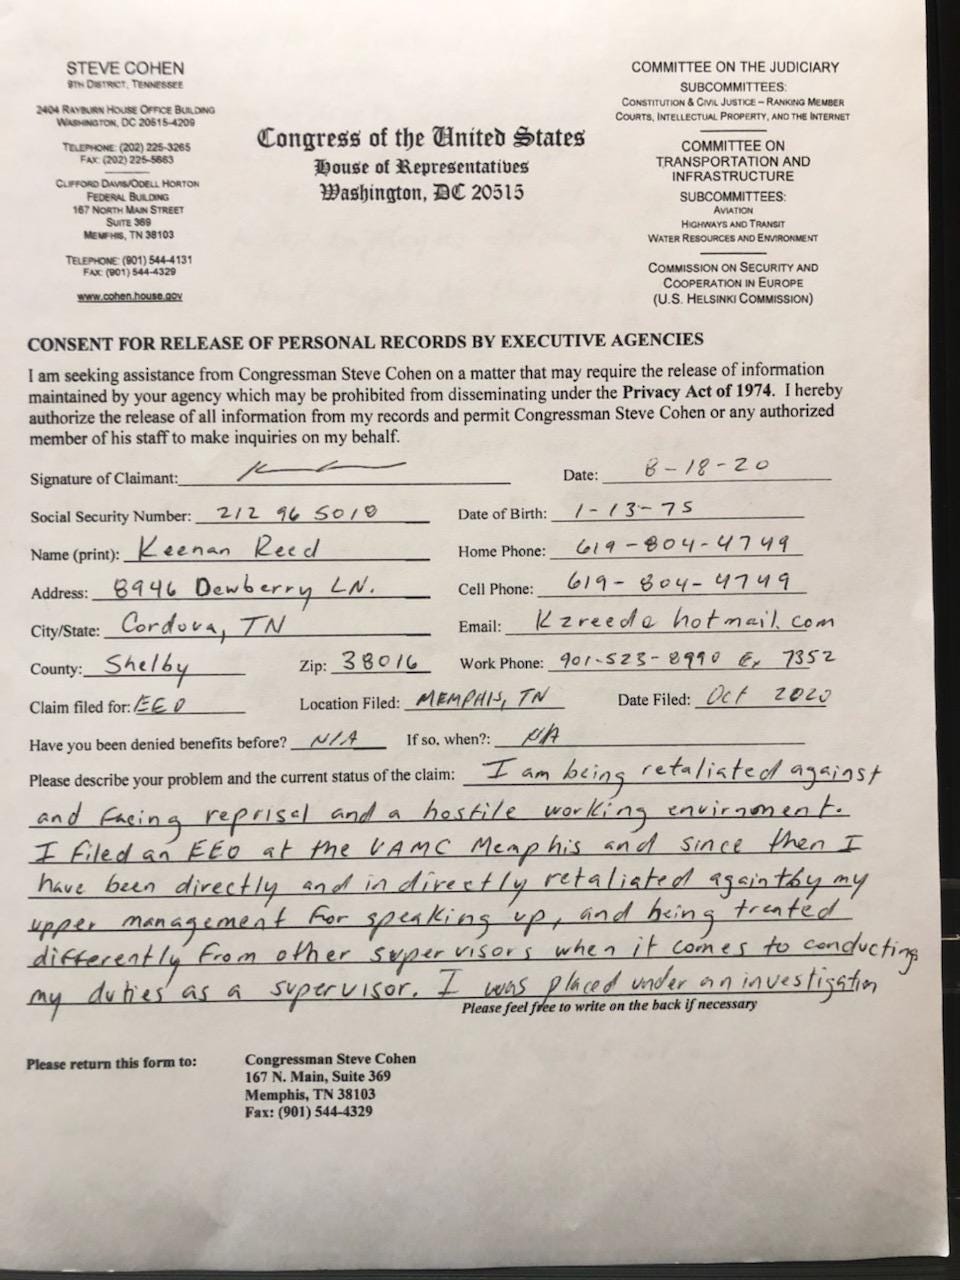 STEVE COHEN
9TH DISTRICT, TENNESSEE
2404 RAYBURN HOUSE OFFICE BUILDING
WASHINGTON, DC 20515-4209
TELEPHONE: (202) 225-3265
FAX: (202) 225-5663
CLIFFORD DAVIS/ODELL HORTON
FEDERAL BUILDING
167 NORTH MAIN STREET
SUITE 369
MEMPHIS, TN 38103
TELEPHONE: (901) 544-4131
FAX: (901) 544-4329
www.cohen.house.gov
Congress of the United States
House of Representatives
Washington, DC 20515
COMMITTEE ON THE JUDICIARY
SUBCOMMITTEES:
CONSTITUTION & CIVIL JUSTICE – RANKING MEMBER
COURTS, INTELLECTUAL PROPERTY, AND THE INTERNET
COMMITTEE ON
TRANSPORTATION AND
INFRASTRUCTURE
SUBCOMMITTEES:
AVIATION
HIGHWAYS AND TRANSIT
WATER RESOURCES AND ENVIRONMENT
COMMISSION ON SECURITY AND
COOPERATION IN EUROPE
(U.S. HELSINKI COMMISSION)
CONSENT FOR RELEASE OF PERSONAL RECORDS BY EXECUTIVE AGENCIES
I am seeking assistance from Congressman Steve Cohen on a matter that may require the release of information
maintained by your agency which may be prohibited from disseminating under the Privacy Act of 1974. I hereby
authorize the release of all information from my records and permit Congressman Steve Cohen or any authorized
member of his staff to make inquiries on my behalf.
Signature of Claimant: Date: 8-18-20
Social Security Number: 212 96 5018 Date of Birth: 1-13-75
Name (print): Keenan Reed Home Phone: 619-804-4749
Address: 8946 Dewberry LN. Cell Phone: 619-804-4749
City/State: Cordova, TN Email: Kzreed@hotmail.com
County: Shelby Zip: 38016 Work Phone: 901-523-8990 Ex 7352
Claim filed for: EEO Location Filed: MEMPHIS, TN Date Filed: Oct 2020
Have you been denied benefits before? N/A If so, when?: N/A
Please describe your problem and the current status of the claim: I am being retaliated against
and facing reprisal and a hostile working envirnment.
I filed an EEO at the VAMC Memphis and since then I
have been directly and indirectly retaliated againtby my
upper management for speaking up, and being treated
differently from other supervisors when it comes to conducting
my duties as a supervisor. I was placed under an investigation
Please feel free to write on the back if necessary
Please return this form to: Congressman Steve Cohen
167 N. Main, Suite 369
Memphis, TN 38103
Fax: (901) 544-4329